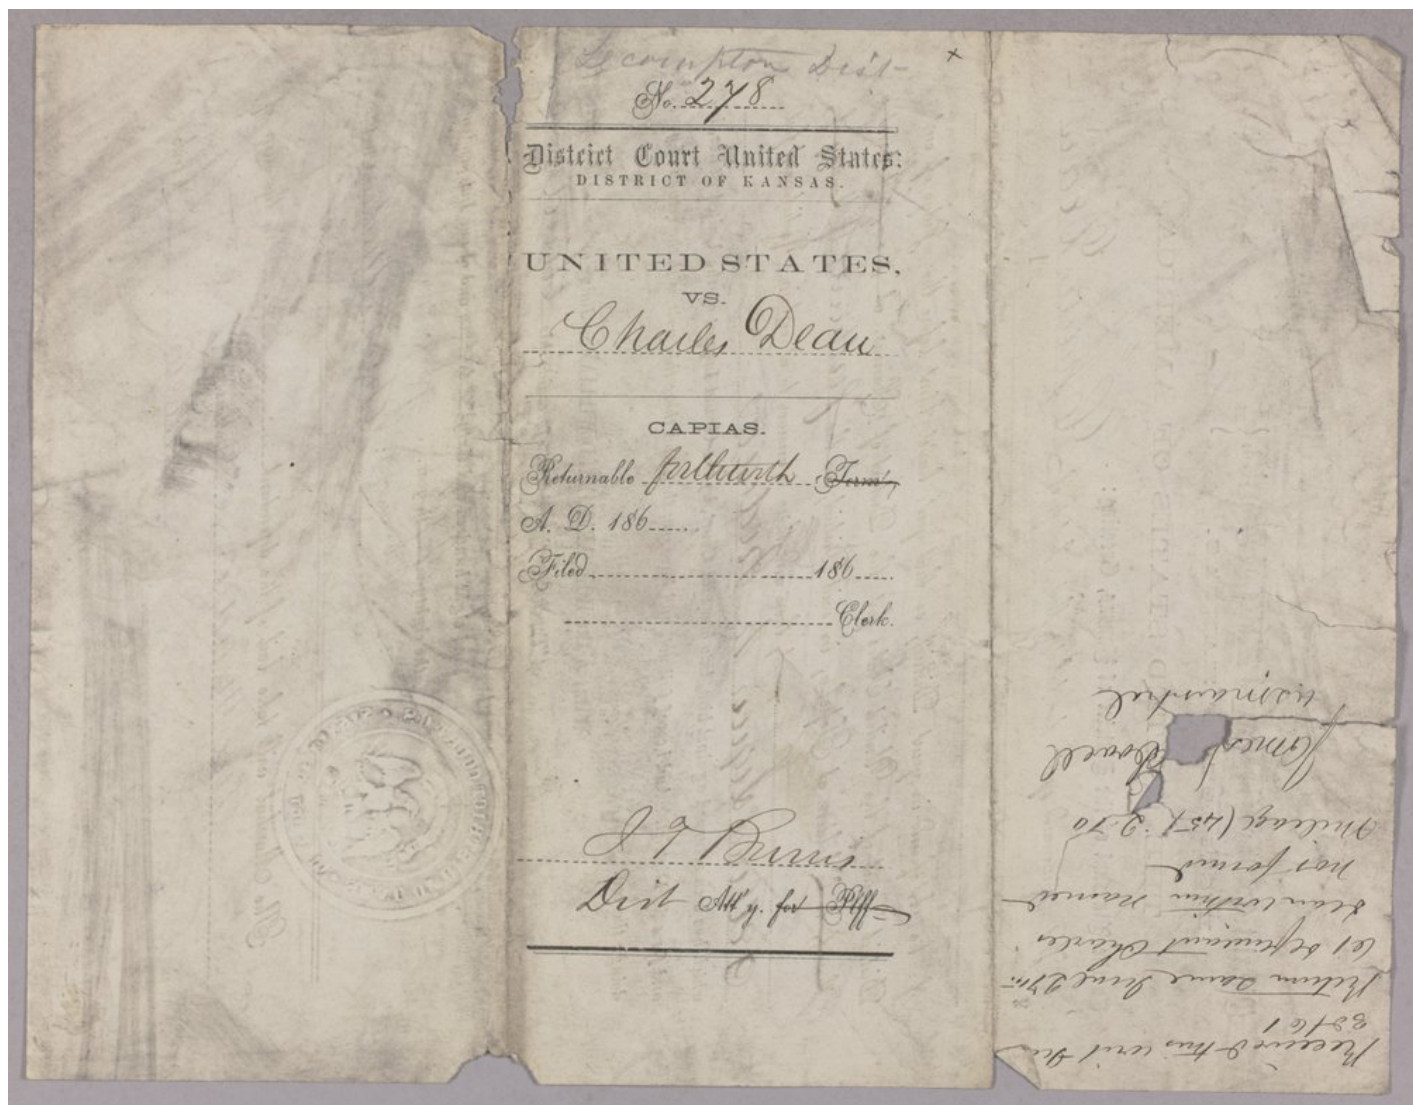 Lecompton Dist
x
No. 278
District Court United States:
DISTRICT OF KANSAS.
UNITED STATES,
VS.
Charles Dean
CAPIAS.
Returnable forthwith Term,
A. D. 186
Filed 186
Clerk.
Burns
Dist Att'y. for Plff
Received this writ
Return same June 27
61 defendant Charles
Dean within named
not found
Mileage (45) 2.70
James
US Marshal